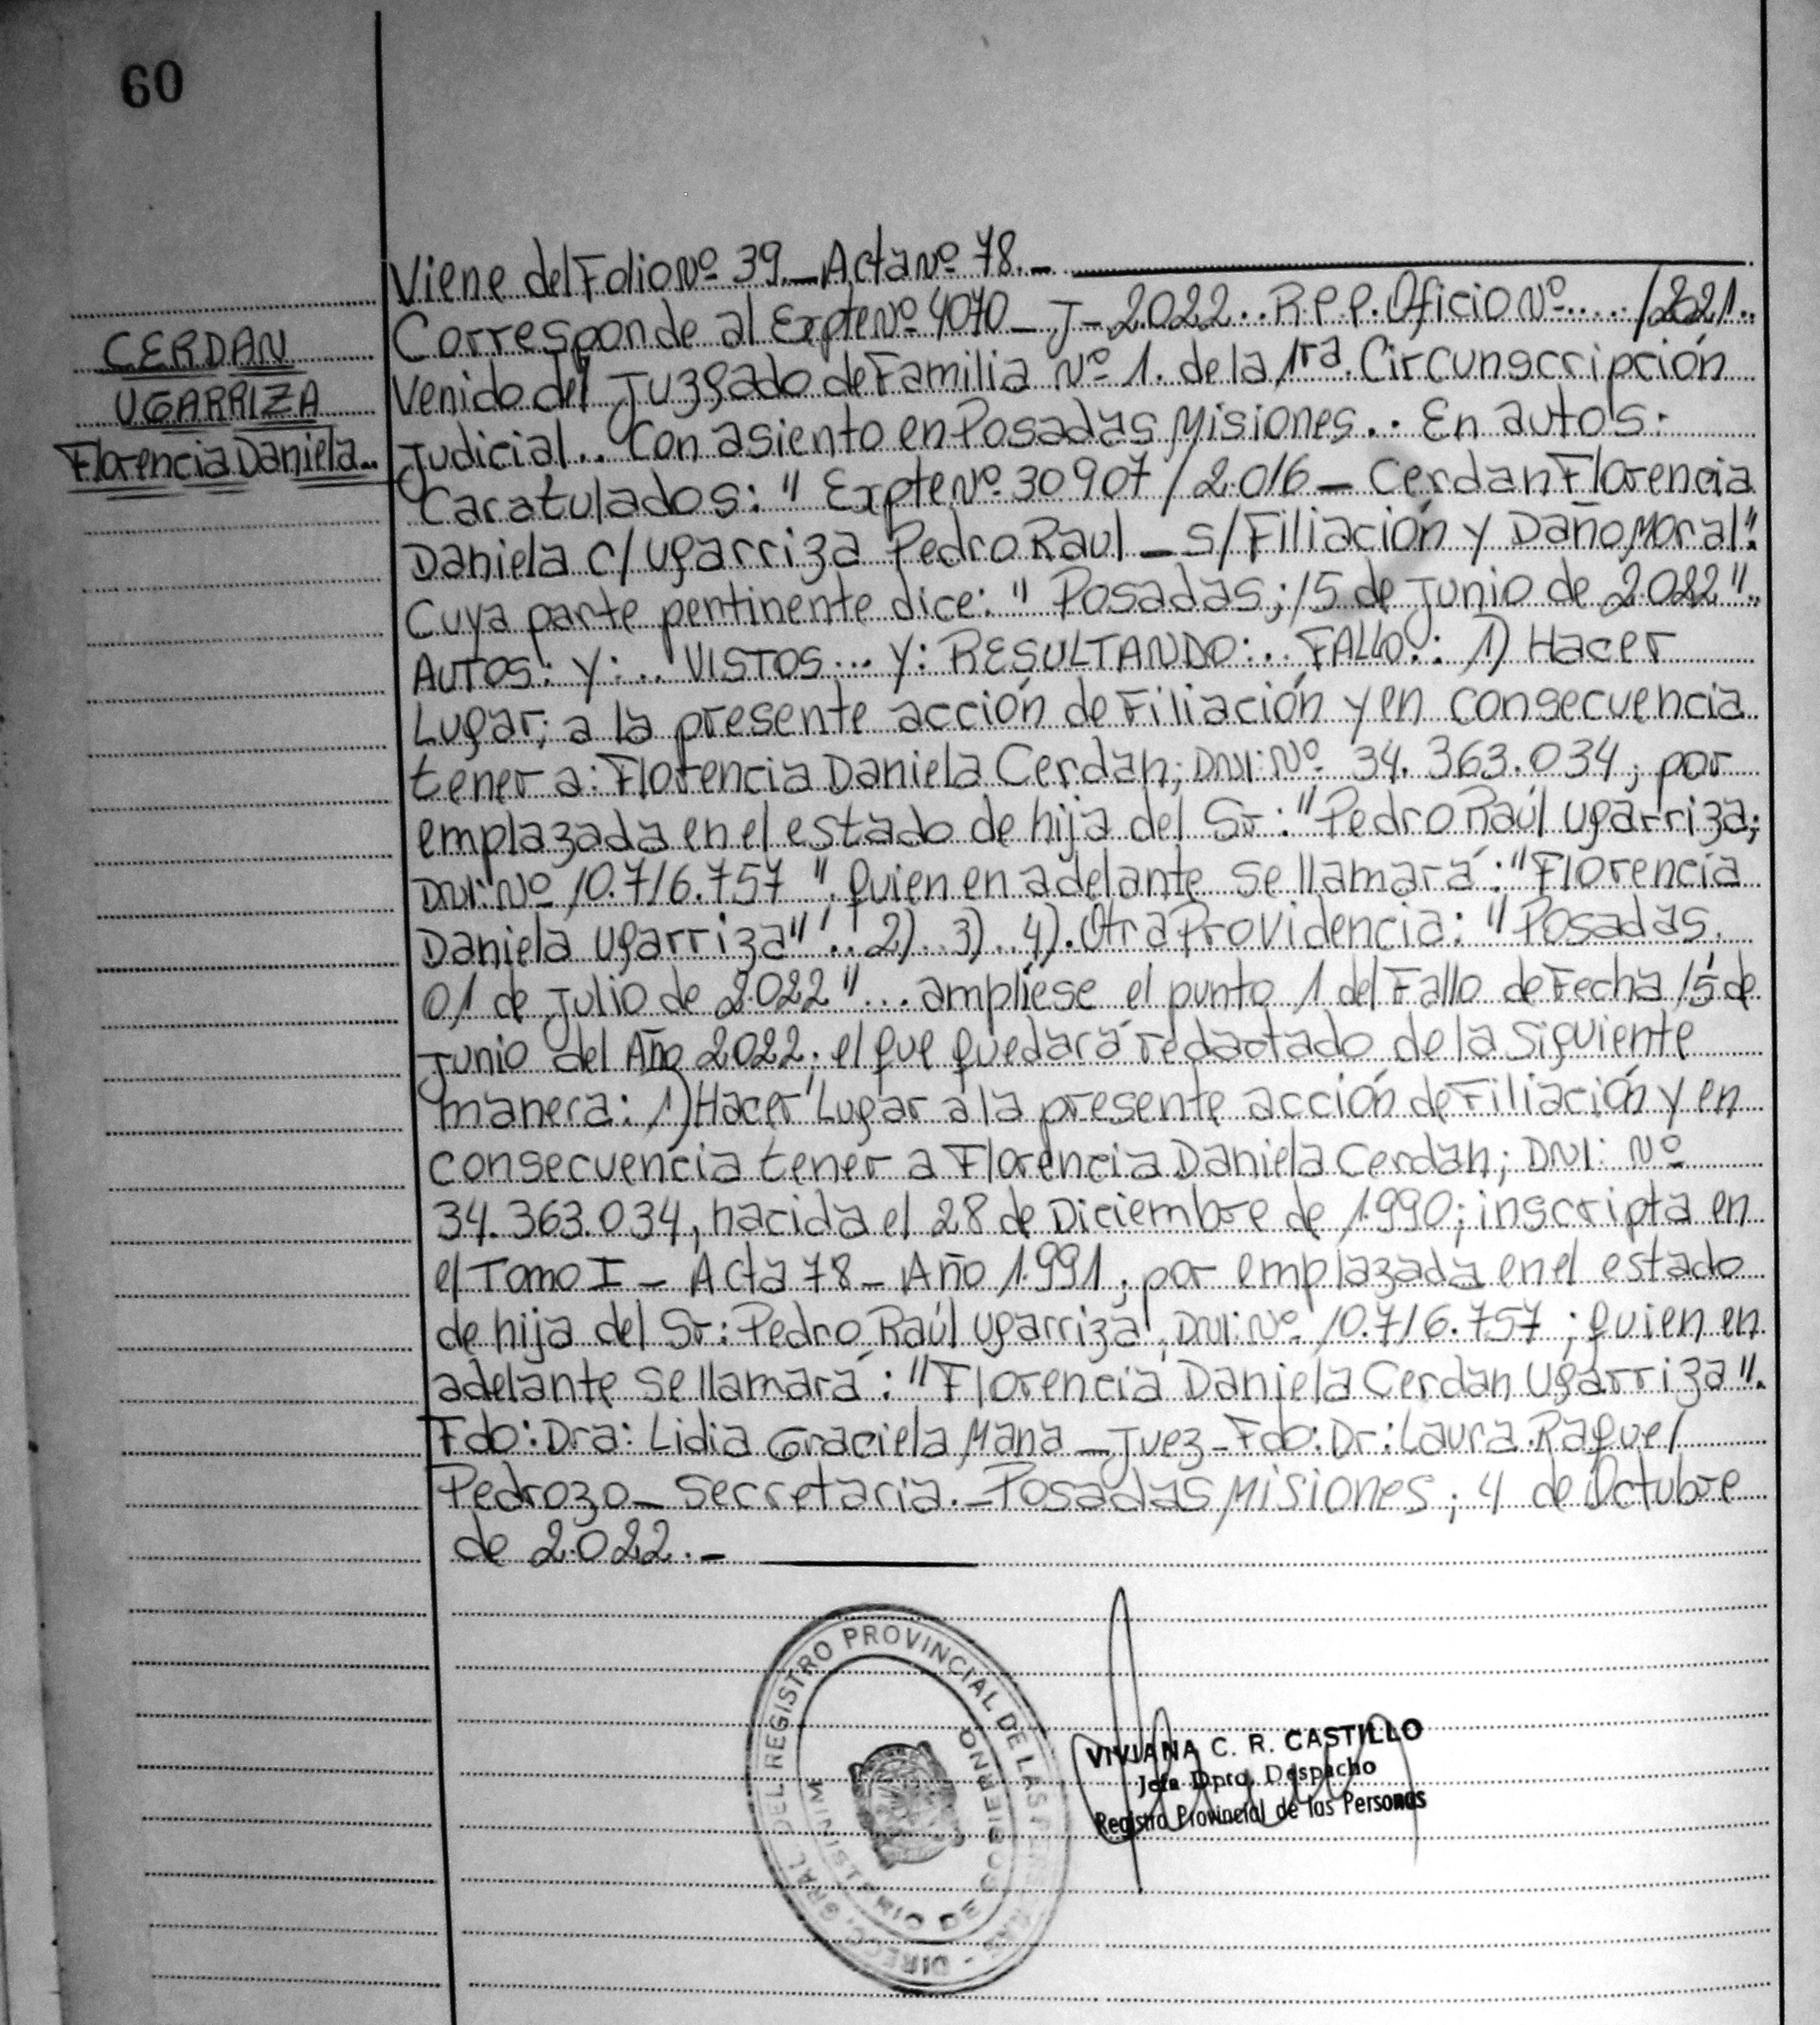 60
Viene del Folio Nº 39._ Acta Nº 78._
CERDAN
UGARRIZA
Florencia Daniela..
Corresponde al Expte Nº 4070_ J_ 2022.. R.P.P. Oficio Nº.... /2021..
Venido del Juzgado de Familia Nº 1. de la 1ra. Circunscripción
Judicial... Con asiento en Posadas Misiones... En autos:
Caratulados: "Expte Nº 30907/2016_ Cerdan Florencia
Daniela c/ Ugarriza Pedro Raul_ S/ Filiación y Daño Moral".
Cuya parte pertinente dice: "Posadas; 15 de Junio de 2022"..
AUTOS: y:.. VISTOS... y: RESULTANDO:.. FALLO:.: 1) Hacer
Lugar; a la presente acción de Filiación y en consecuencia
tener a: Florencia Daniela Cerdan; DNI: Nº 34.363.034; por
emplazada en el estado de hija del Sr: "Pedro Raúl Ugarriza;
DNI: Nº 10.716.757". quien en adelante se llamará: "Florencia
Daniela Ugarriza"... 2).. 3).. 4). Otra Providencia: "Posadas.
01 de Julio de 2022"... ampliese el punto 1 del Fallo de Fecha 15 de
Junio del Año 2022; el que quedará redactado de la siguiente
manera: 1) Hacer Lugar a la presente acción de Filiación y en
consecuencia tener a Florencia Daniela Cerdan; DNI: Nº
34.363.034, nacida el 28 de Diciembre de 1.990; inscripta en
el Tomo I_ Acta 78_ Año 1.991, por emplazada en el estado
de hija del Sr: Pedro Raúl Ugarriza, DNI: Nº 10.716.757; quien en
adelante se llamará: "Florencia Daniela Cerdan Ugarriza".
Fdo: Dra: Lidia Graciela Mana_ Juez_ Fdo: Dr: Laura Raquel
Pedrozo_ Secretaria._ Posadas Misiones; 4 de Octubre
de 2.022._
DIRECC. GRAL. DEL REGISTRO PROVINCIAL DE LAS PERSONAS
MINISTERIO DE GOBIERNO
VIVIANA C. R. CASTILLO
Jefa Dpto. Despacho
Registro Provincial de las Personas